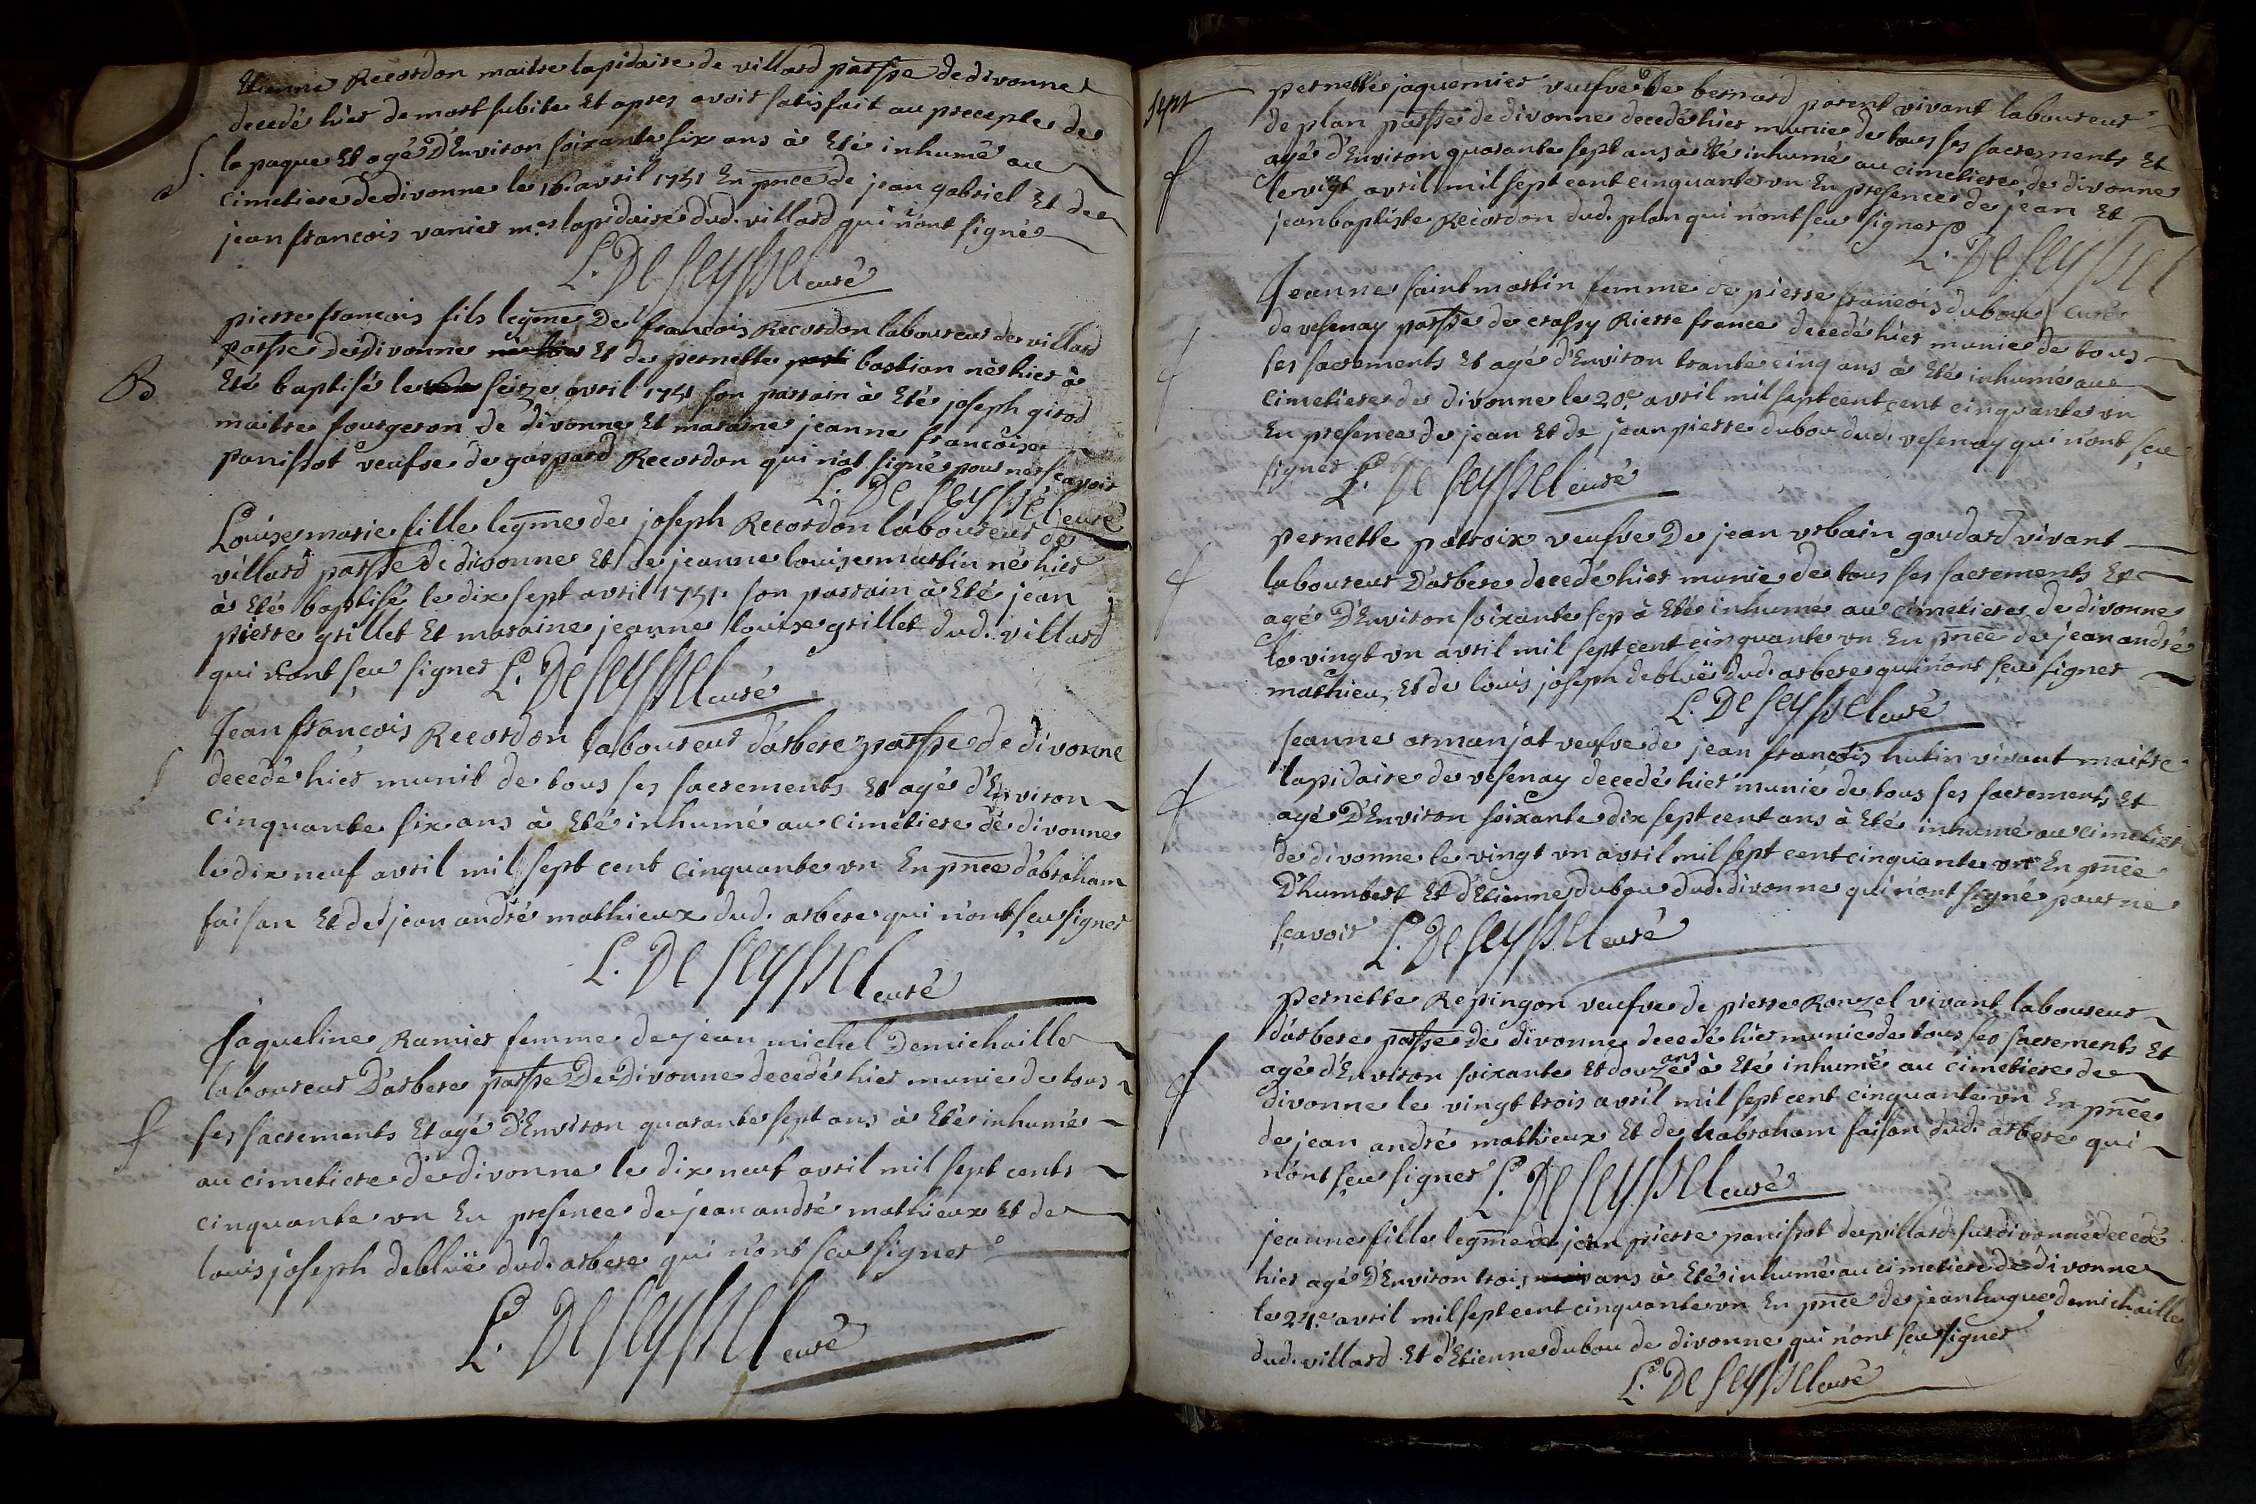 Etienne Recordon maitre lapidaire de villard parsse de divonne
decedé hier de mort subite Et apres avoir satisfait au precepte de
S. la paque Et agé D'Environ soixante six ans à Eté inhumé au
cimetiere de divonne le 16e avril 1751 En pnce de jean gabriel Et de
jean francois vanier mes lapidaire dud. villard qui n'ont signé
L. De Seyssel curé
pierre francois fils legme De francois Recordon laboureur de villard
parsse de divonne Et de pernette bastion né hier à
B Eté baptisé le seize avril 1751 son parrain à Eté joseph girod
maitre fourgeron de divonne Et maraine jeanne francoise
panissot veufve de gaspard Recordon qui n'ot signé pour ne scavoir
L. De Seyssel curé
Louise marie fille legme de joseph Recordon laboureur de
villard parsse de divonne Et de jeanne louise martin né hier
à Eté baptisé le dix sept avril 1751. son parrain à Eté jean
pierre grillet Et maraine jeanne louise grillet dud. villard
qui n'ont sçeu signer L. De Seyssel curé
Jean françois Recordon laboureur d'arbere parsse de divonne
S decedé hier munit de tous ses sacrements Et agé d'Environ
cinquante six ans à Eté inhumé au cimetiere de divonne
le dix neuf avril mil sept cent cinquante vn En pnce d'abraham
faisan Et de jean andré mathieux dud. arbere qui n'ont sçeu signer
L. De Seyssel curé
Jaqueline Ramier femme de jean michel Demichaille
laboureur D'arbere parsse De Divonne decedé hier munie de tous
S ses sacrements Et agé D'Environ quarante sept ans à Eté inhumé
au cimetiere de divonne le dix neuf avril mil sept cents
cinquante vn En presence de jean andré mathieux Et de
louis joseph debluë dud. arbere qui n'ont sceu signer
L. De Seyssel curé
sept pernette jaquemier veufve De bernard parent vivant laboureur
de plan parsse de divonne decedé hier munie de tous ses sacrements Et
S agé d'Environ quarante sept ans à Eté inhumé au cimetiere de divonne
le vigt avril mil sept cent cinquante vn En presence de jean Et
jean baptiste Recordon dud. plan qui n'ont sceu signer
L. De Seyssel curé
Jeanne saint martin femme de pierre françois dubou
de vesenay parsse de crassy Rierre france decedé hier munie de tous
S ses sacrements Et agé d'Environ trante cinq ans à Eté inhumé au
cimetiere de divonne le 20e avril mil sept cent cent cinquante vn
En presence de jean Et de jean pierre dubou dud. vesenay qui n'ont sçeu
signer L. De Seyssel curé
pernette patroix veufve De jean vrbain goudard vivant
S laboureur D'arbere decedé hier munie de tous ses sacrements Et
agé D'Environ soixante sep à Eté inhumé au cimetiere de divonne
le vingt vn avril mil sept cent cinquante vn En pnce de jean andré
mathieu, Et de louis joseph debluë dud. arbere qui n'ont sçeu signer
L. De Seyssel curé
Jeanne armanjat veufve de jean françois hutin vivant maitre
S lapidaire de vesenay decedé hier munie de tous ses sacrements Et
agé D'Environ soixante dix sept cent ans à Eté inhumé au cimetiere
de divonne le vingt vn avril mil sept cent cinquante vn En pnce
D'humbert Et d'Etienne dubou dud. divonne qui n'ont signé pour ne
sçavoir L. De Seyssel curé
Pernette Repingon veufve de pierre Rouzel vivant laboureur
d'arbere parsse de divonne decedé hier munie de tous ses sacrements Et
S agé d'Environ soixante Et douze ans à Eté inhumé au cimetiere de
divonne le vingt trois avril mil sept cent cinquante vn En pnce
de jean andré mathieux Et de habraham faisan dud. arbere qui
n'ont sçeu signer L. De Seyssel curé
jeanne fille legme de jean pierre panissot de villard sur divonne decedé
hier agé D'Environ trois ans à Eté inhumé au cimetiere de divonne
le 24e avril mil sept cent cinquante vn En pnce de jean hugue demichaille
dud. villard Et d'Etienne dubou de divonne qui n'ont sceu signer
L. De Seyssel curé